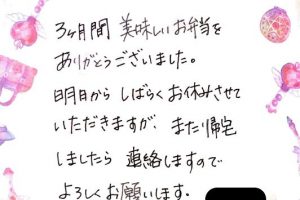 3ヶ月間 美味しいお弁当を
ありがとうございました。
明日から しばらくお休みさせて
いただきますが、また帰宅
しましたら 連絡しますので
よろしくお願いします。